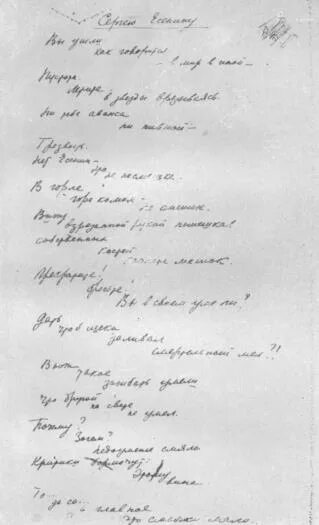 Сергею Есенину
Вы ушли
как говорится
в мир в иной —
Пустота
Летите
в звезды врезываясь
Ни тебе аванса
ни пивной —
Трезвость.
Нет Есенин —
это
не насмешка.
В горле
горе комом
не смешок.
Вижу
взрезанной рукой помешкав
собственных
костей
качаете мешок.
Прекратите!
бросьте!
Вы в своем уме ли?
Дать
чтоб щеки
заливал
смертельный мел?!
Вы ж
такое
загибать умели
что другой
на свете
не умел.
Почему?
Зачем?
недоуменье смяло
Критики бормочут
Этому
вина
То... да се...
а главное
что смычки мало